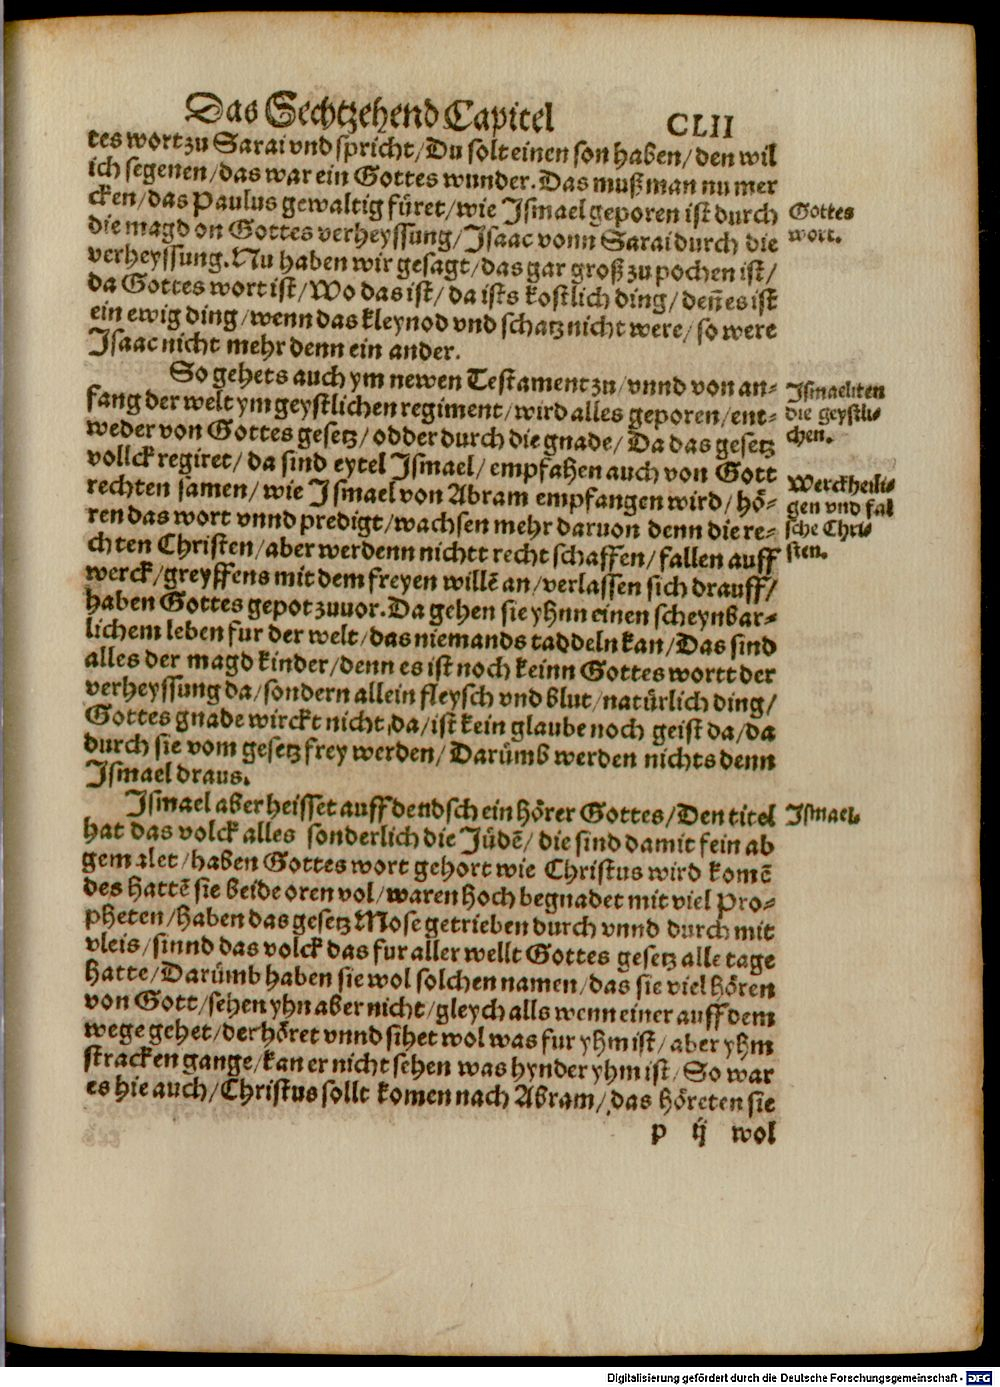 Das Sechtzehend Capitel CLII
tes wort zu Sarai vnd spricht/ Du solt einen son haben/ den wil
ich segenen/ das war ein Gottes wunder. Das muß man nu mer
cken/ das Paulus gewaltig füret/ wie Jsmael geporen ist durch
Gottes
die magd on Gottes verheyssung/ Jsaac vonn Sarai durch die
wort.
verheyssung. Nu haben wir gesagt/ das gar groß zu pochen ist/
da Gottes wort ist/ Wo das ist/ da ists kostlich ding/ deñ es ist
ein ewig ding/ wenn das kleynod vnd schatz nicht were/ so were
Jsaac nicht mehr denn ein ander.
So gehets auch ym newen Testament zu/ vnnd von an-
Jsmaeliten
fang der welt ym geystlichen regiment/ wird alles geporen/ ent-
die geystli-
weder von Gottes gesetz/ odder durch die gnade/ Da das gesetz
chen.
vollck regiret/ da sind eytel Jsmael/ empfahen auch von Gott
Werckheili-
rechten samen/ wie Jsmael von Abram empfangen wird/ hö-
gen vnd fal
ren das wort vnnd predigt/ wachsen mehr daruon denn die re-
sche Chri-
chten Christen/ aber werdenn nichtt recht schaffen/ fallen auff
sten.
werck/ greyffens mit dem freyen willē an/ verlassen sich drauff/
haben Gottes gepot zuuor. Da gehen sie yhnn einen scheynbar-
lichem leben fur der welt/ das niemands taddeln kan/ Das sind
alles der magd kinder/ denn es ist noch keinn Gottes wortt der
verheyssung da/ sondern allein fleysch vnd blut/ natürlich ding/
Gottes gnade wirckt nicht da/ ist kein glaube noch geist da/ da
durch sie vom gesetz frey werden/ Darümb werden nichts denn
Jsmael draus.
Jsmael aber heisset auff dendsch ein hörer Gottes/ Den titel
Jsmael.
hat das volck alles sonderlich die Jüdē/ die sind damit fein ab
gemalet/ haben Gottes wort gehort wie Christus wird komē
des hattē sie beide oren vol/ waren hoch begnadet mit viel Pro-
pheten/ haben das gesetz Mose getrieben durch vnnd durch mit
vleis/ sinnd das volck das fur aller wellt Gottes gesetz alle tage
hatte/ Darümb haben sie wol solchen namen/ das sie viel hören
von Gott/ sehen yhn aber nicht/ gleych alls wenn einer auff dem
wege gehet/ der höret vnnd sihet wol was fur yhm ist/ aber yhm
stracken gange/ kan er nicht sehen was hynder yhm ist/ So war
es hie auch/ Christus sollt komen nach Abram/ das höreten sie
p ij wol
Digitalisierung gefördert durch die Deutsche Forschungsgemeinschaft - DFG